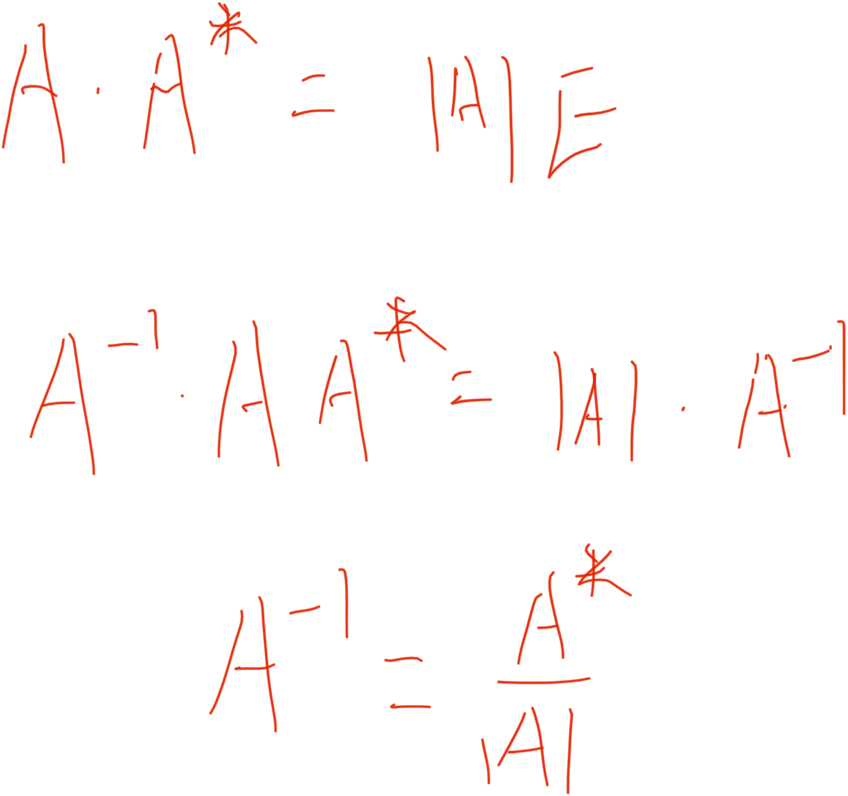 A · A* = |A| E
A⁻¹ · A A* = |A| · A⁻¹
A⁻¹ = A* / |A|